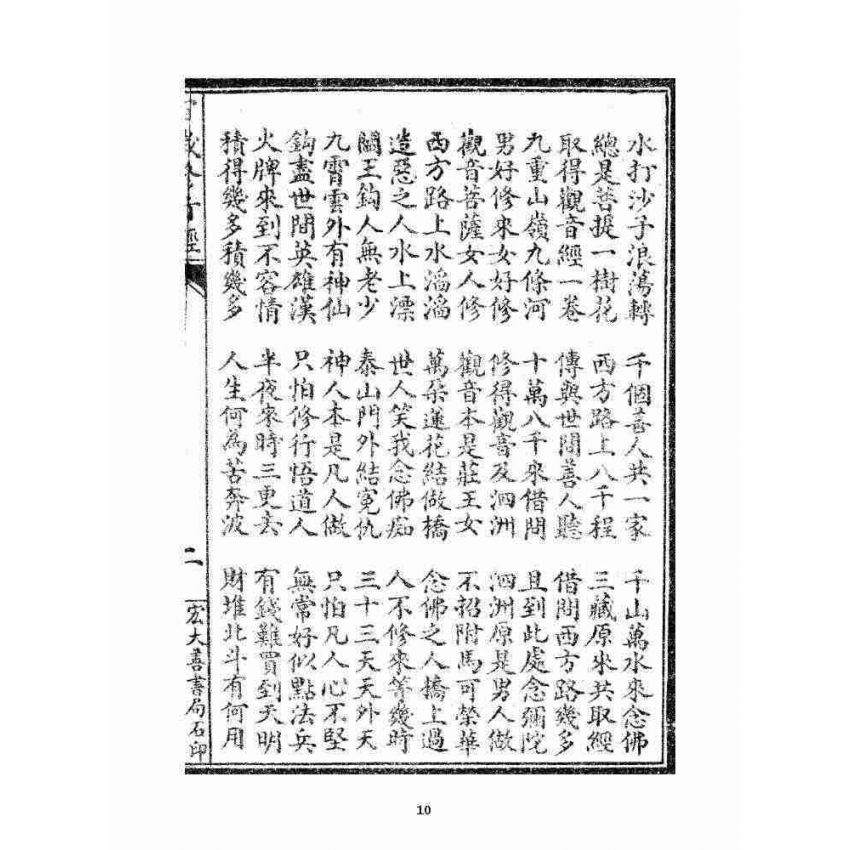 水打沙子浪蕩轉 千個善人共一家 千山萬水來念佛
總是菩提一樹花 西方路上八千程 三藏原來共取經
取得觀音經一卷 傳與世間善人聽 借問西方路幾多
九重山嶺九條河 十萬八千來借問 且到此處念彌陀
男好修來女好修 修得觀音及泗洲 泗洲原是男人做
觀音菩薩女人修 觀音本是莊王女 不招附馬可榮華
西方路上水滔滔 萬朵蓮花結做橋 念佛之人橋上過
造惡之人水上漂 世人笑我念佛痴 人不修來等幾時
閻王鈎人無老少 泰山門外結冤仇 三十三天天外天
九霄雲外有神仙 神人本是凡人做 只怕凡人心不堅
鈎盡世間英雄漢 只怕修行悟道人 無常好似點法兵
火牌來到不容情 半夜來時三更去 有錢難買到天明
積得幾多積幾多 人生何為苦奔波 財堆北斗有何用
經 二 宏大善書局石印
10